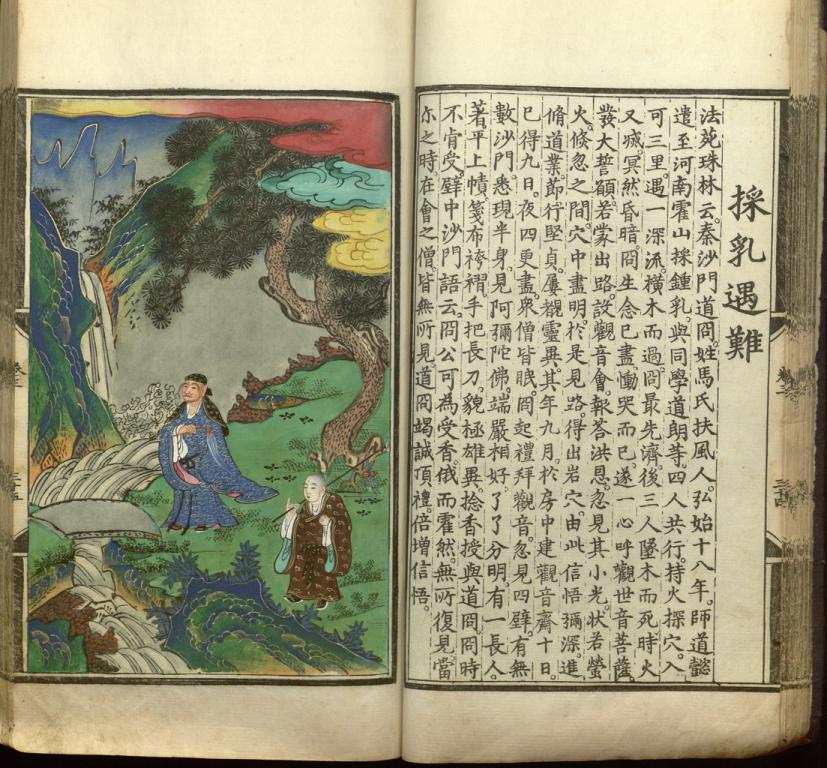 採乳遇難
法苑珠林云。秦沙門道冏。姓馬氏扶風人。弘始十八年。師道懿
遣至河南霍山採鍾乳。與同學道朗等。四人共行。持火探穴。入
可三里。遇一深流。橫木而過。冏最先濟。後三人墮木而死。時火
又滅。冥然昏暗。冏生念已盡。慟哭而已。遂一心呼觀世音菩薩。
發大誓願。若蒙出路。設觀音會。報荅洪恩。忽見其小光。狀若螢
火。倏忽之間。穴中盡明。於是見路。得出岩穴。由此信悟彌深。進
脩道業。節行堅貞。屢覩靈異。其年九月。於房中建觀音齋十日。
已得九日。夜四更盡。衆僧皆眠。冏起禮拜觀音。忽見四壁。有無
數沙門。悉現半身。見阿彌陀佛。端嚴相好。了了分明。有一長人。
著平上幘。箋布袴褶。手把長刀。貌極雄異。捻香授與道冏。冏時
不肯受。壁中沙門語云。冏公可為受香。俄而霍然。無所復見。當
尒之時。在會之僧。皆無所見。道冏竭誠頂禮。倍增信悟。